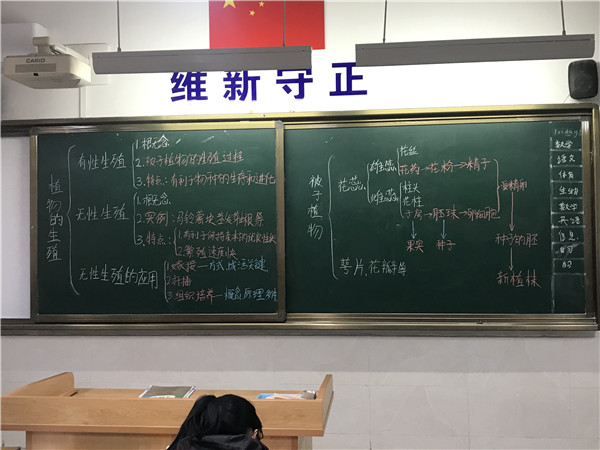 CASIO
维新守正
植物的生殖
有性生殖
1.概念
2.被子植物的生殖过程
3.特点:有利于物种的生存和进化
无性生殖
1.概念
2.实例:马铃薯块茎
3.特点:1.有利于保持亲本的优良性状
2.繁殖速度快
无性生殖的应用
1.嫁接—方式,成活关键
2.扦插
3.组织培养—概念原理
被子植物
花蕊
雄蕊
花丝
花药→花粉→精子
雌蕊
柱头
花柱
子房→胚珠→卵细胞
受精卵
果实
种子
种子的胚
新植株
萼片,花瓣等
数学
语文
体育
生物
数学
英语
信息